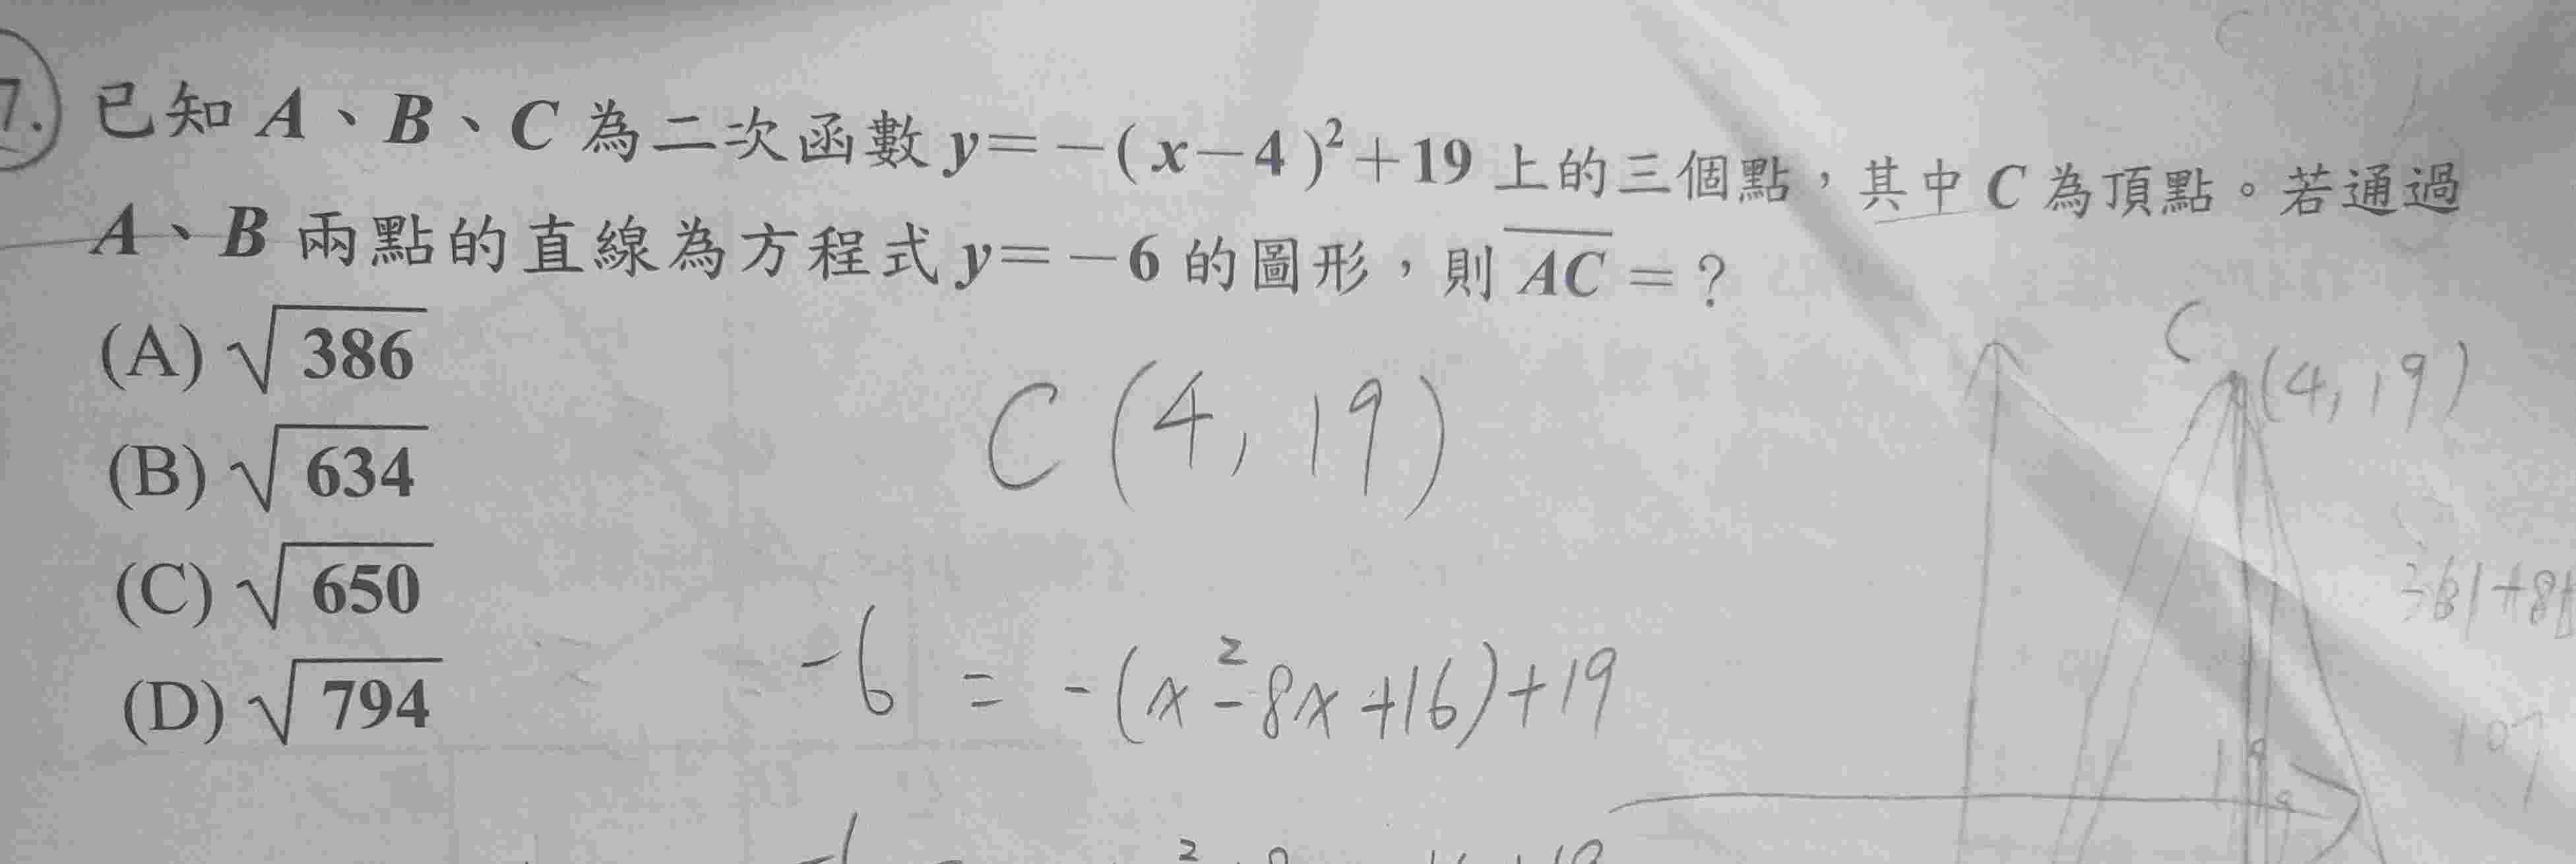 7. 已知 A、B、C 為二次函數 y=-(x-4)²+19 上的三個點，其中 C 為頂點。若通過
A、B 兩點的直線為方程式 y=-6 的圖形，則 \overline{AC} = ？
(A) √386
(B) √634
(C) √650
(D) √794
C (4, 19)
-6 = -(x²-8x+16)+19
C
(4, 19)
361+81
19